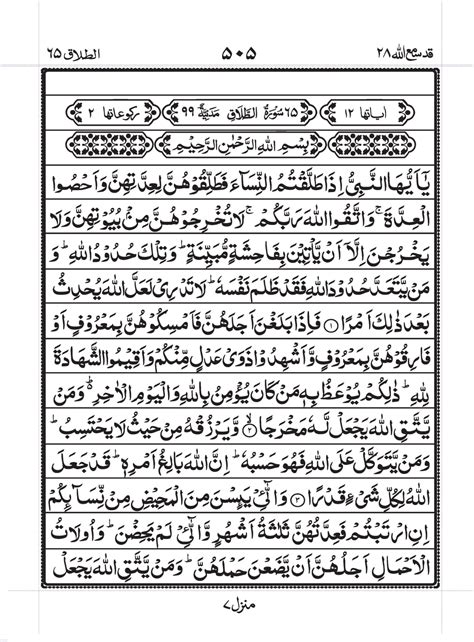 قد سمع الله ۲۸ ۵۰۵ الطلاق ۶۵
اٰیاتها ۱۲ ۶۵ سُوْرَةُ الطَّلَاقِ مَدَنِیَّةٌ ۹۹ رکوعاتها ۲
بِسْمِ اللهِ الرَّحْمٰنِ الرَّحِیْمِ
یٰۤاَیُّهَا النَّبِیُّ اِذَا طَلَّقْتُمُ النِّسَآءَ فَطَلِّقُوْهُنَّ لِعِدَّتِهِنَّ وَاَحْصُوا
الْعِدَّةَ ۚ وَاتَّقُوا اللهَ رَبَّكُمْ ۚ لَا تُخْرِجُوْهُنَّ مِنْۢ بُیُوْتِهِنَّ وَلَا
یَخْرُجْنَ اِلَّاۤ اَنْ یَّاْتِیْنَ بِفَاحِشَةٍ مُّبَیِّنَةٍ ؕ وَتِلْكَ حُدُوْدُ اللهِ ؕ وَ
مَنْ یَّتَعَدَّ حُدُوْدَ اللهِ فَقَدْ ظَلَمَ نَفْسَهٗ ؕ لَا تَدْرِیْ لَعَلَّ اللهَ یُحْدِثُ
بَعْدَ ذٰلِكَ اَمْرًا ۝۱ فَاِذَا بَلَغْنَ اَجَلَهُنَّ فَاَمْسِكُوْهُنَّ بِمَعْرُوْفٍ اَوْ
فَارِقُوْهُنَّ بِمَعْرُوْفٍ وَّاَشْهِدُوْا ذَوَیْ عَدْلٍ مِّنْكُمْ وَاَقِیْمُوا الشَّهَادَةَ
لِلهِ ؕ ذٰلِكُمْ یُوْعَظُ بِهٖ مَنْ كَانَ یُؤْمِنُ بِاللهِ وَالْیَوْمِ الْاٰخِرِ ۬ؕ وَمَنْ
یَّتَّقِ اللهَ یَجْعَلْ لَّهٗ مَخْرَجًا ۝۲ وَّیَرْزُقْهُ مِنْ حَیْثُ لَا یَحْتَسِبُ ؕ
وَمَنْ یَّتَوَكَّلْ عَلَی اللهِ فَهُوَ حَسْبُهٗ ؕ اِنَّ اللهَ بَالِغُ اَمْرِهٖ ؕ قَدْ جَعَلَ
اللهُ لِكُلِّ شَیْءٍ قَدْرًا ۝۳ وَالّٰٓـِٔیْ یَئِسْنَ مِنَ الْمَحِیْضِ مِنْ نِّسَآئِكُمْ
اِنِ ارْتَبْتُمْ فَعِدَّتُهُنَّ ثَلٰثَةُ اَشْهُرٍ وَّالّٰٓـِٔیْ لَمْ یَحِضْنَ ؕ وَاُولَاتُ
الْاَحْمَالِ اَجَلُهُنَّ اَنْ یَّضَعْنَ حَمْلَهُنَّ ؕ وَمَنْ یَّتَّقِ اللهَ یَجْعَلْ
منزل ۷